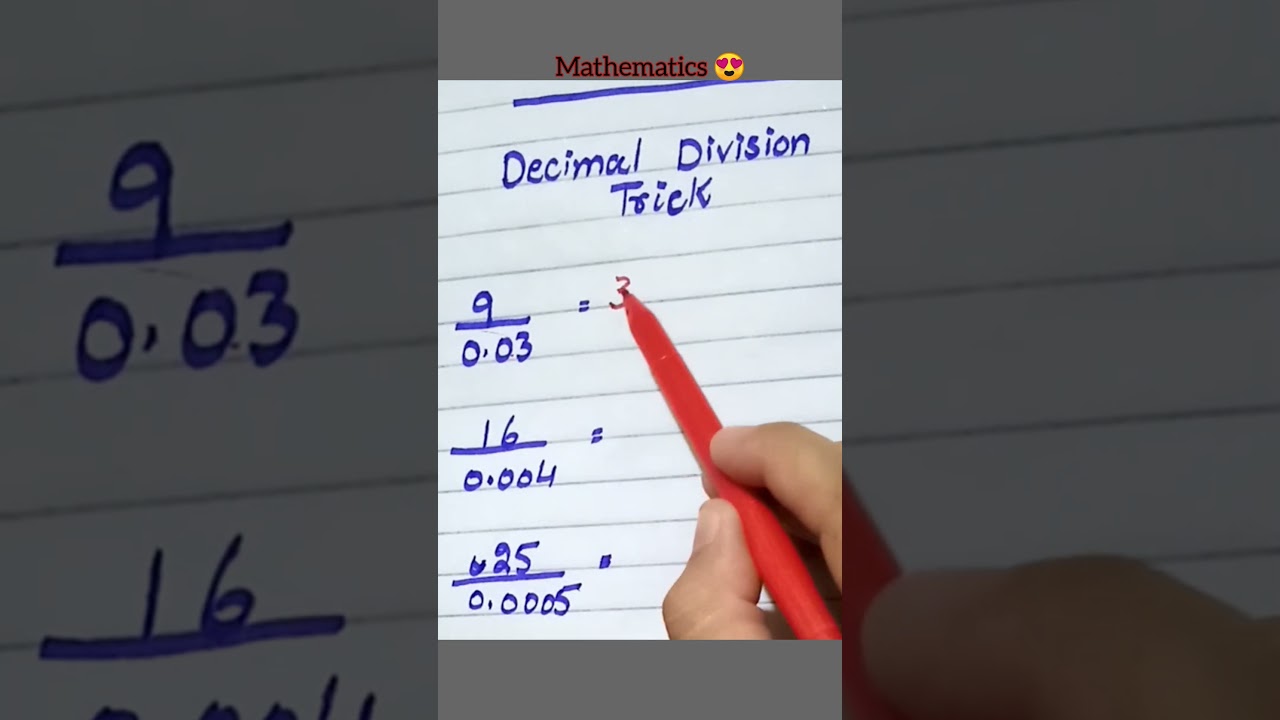 Mathematics 😍
Decimal Division
Trick
9
0.03
= 3
16
0.004
=
25
0.0005
=
9
0.03
16